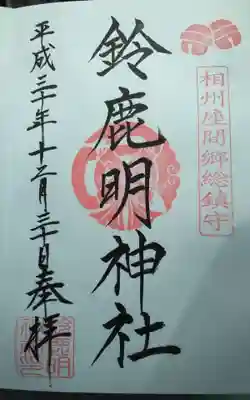 相州座間郷総鎮守
鈴鹿明神社
平成三十年十二月三十日奉拝